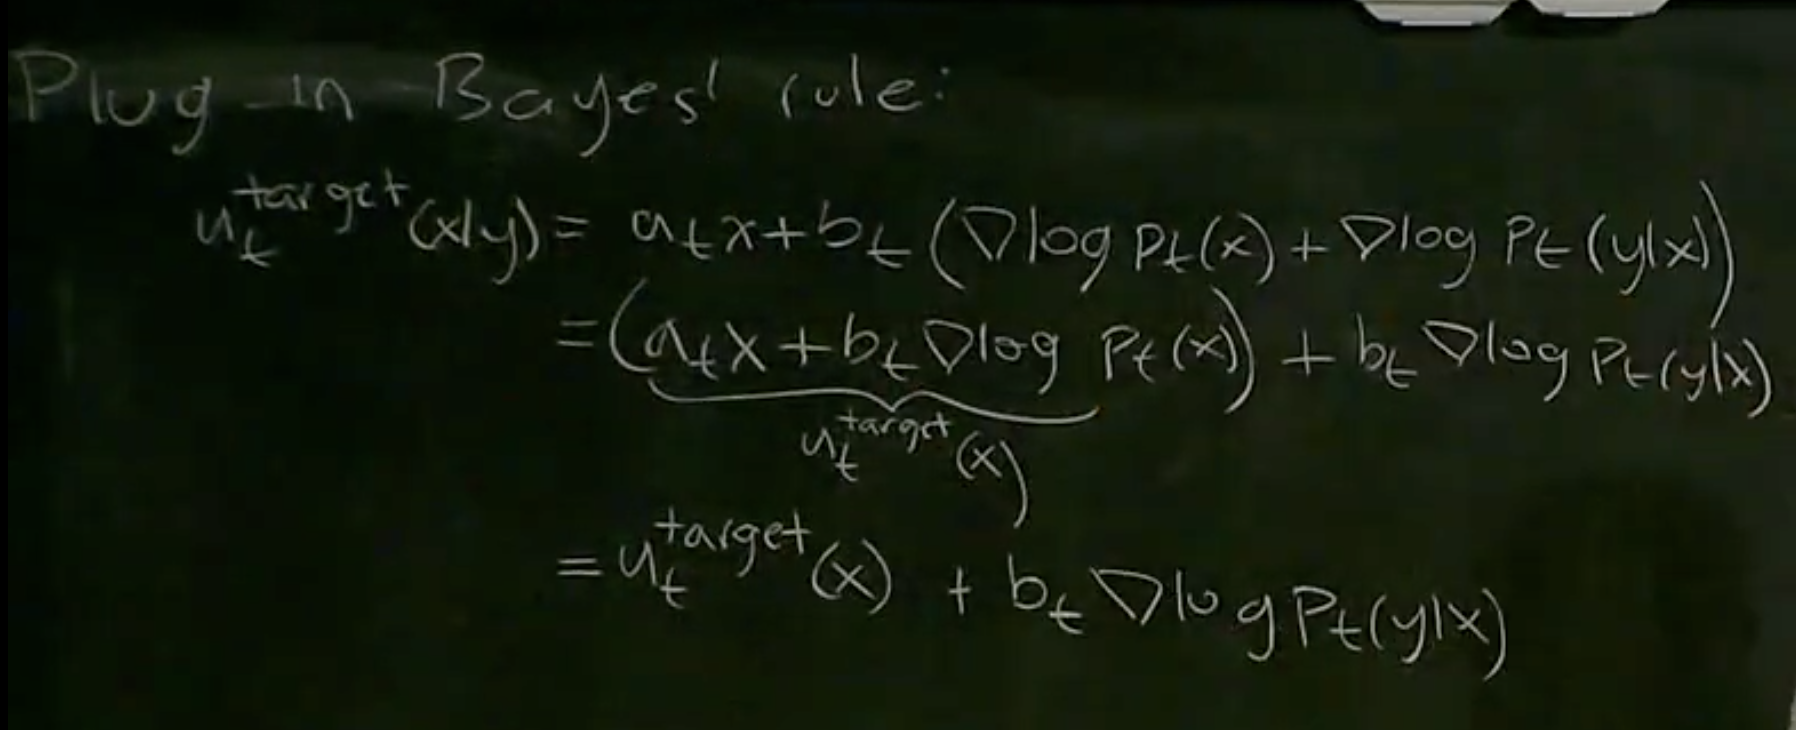 Plug in Bayes' rule:
u_t^target(x|y) = a_t x + b_t (∇log p_t(x) + ∇log p_t(y|x))
= (a_t x + b_t ∇log p_t(x)) + b_t ∇log p_t(y|x)
u_t^target(x)
= u_t^target(x) + b_t ∇log p_t(y|x)